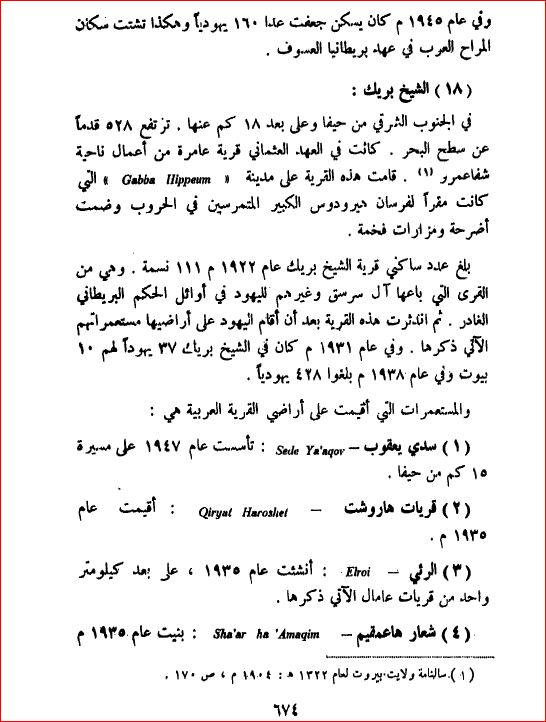 وفي عام ١٩٤٥ م كان يسكن جعفت عدا ١٦٠ يهودياً وهكذا تشتت سكان
المراح العرب في عهد بريطانيا العسوف .
( ١٨ ) الشيخ بريك :
في الجنوب الشرقي من حيفا وعلى بعد ١٨ كم عنها . ترتفع ٥٢٨ قدماً
عن سطح البحر . كانت في العهد العثماني قرية عامرة من أعمال ناحية
شفاعمرو (١) . قامت هذه القرية على مدينة « Gabba Hippeum » التي
كانت مقراً لفرسان هيرودوس الكبير المتمرسين في الحروب وضمت
أضرحة ومزارات فخمة .
بلغ عدد ساكني قرية الشيخ بريك عام ١٩٢٢ م ١١١ نسمة . وهي من
القرى التي باعها آل سرسق وغيرهم لليهود في أوائل الحكم البريطاني
الغادر . ثم اندثرت هذه القرية بعد أن أقام اليهود على أراضيها مستعمراتهم
الآتي ذكرها . وفي عام ١٩٣١ م كان في الشيخ بريك ٣٧ يهودياً لهم ١٠
بيوت وفي عام ١٩٣٨ م بلغوا ٤٢٨ يهودياً .
والمستعمرات التي أقيمت على أراضي القرية العربية هي :
( ١ ) سدي يعقوب – Sede Ya'aqov : تأسست عام ١٩٤٧ على مسيرة
١٥ كم من حيفا .
( ٢ ) قريات هاروشت – Qiryat Haroshet : أقيمت عام
١٩٣٥ م .
( ٣ ) الرئي – Elroi : أنشئت عام ١٩٣٥ ، على بعد كيلومتر
واحد من قريات عامال الآتي ذكرها .
( ٤ ) شعار هاعمقيم – Sha'ar ha 'Amaqim : بنيت عام ١٩٣٥ م
( ١ ) سالنامة ولايت بيروت لعام ١٣٢٢ هـ : ١٩٠٤ م ، ص ١٧٠ .
٦٧٤